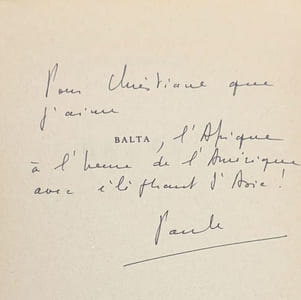 Pour Christiane que
j'aime
BALTA, l'Afrique
à l'heure de l'Amérique
avec éléphant d'Asie !
Paule